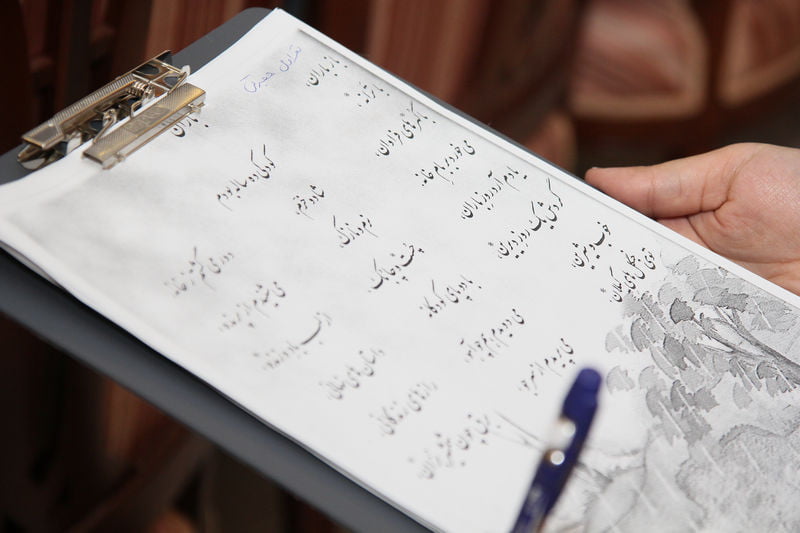 باز باران،
با ترانه،
با گهرهای فراوان،
می خورد بر بام خانه.
یادم آرد روز باران،
گردش یک روز دیرین،
خوب و شیرین
توی جنگل های گیلان.
باران
کودکی ده ساله بودم
شاد و خرم
نرم و نازک
چست و چابک
با دو پای کودکانه
می دویدم همچو آهو
می پریدم از سر جو
دور می گشتم ز خانه
می شنیدم از پرنده
از لب باد وزنده
داستان های نهانی
رازهای زندگانی
برق چون شمشیر بران